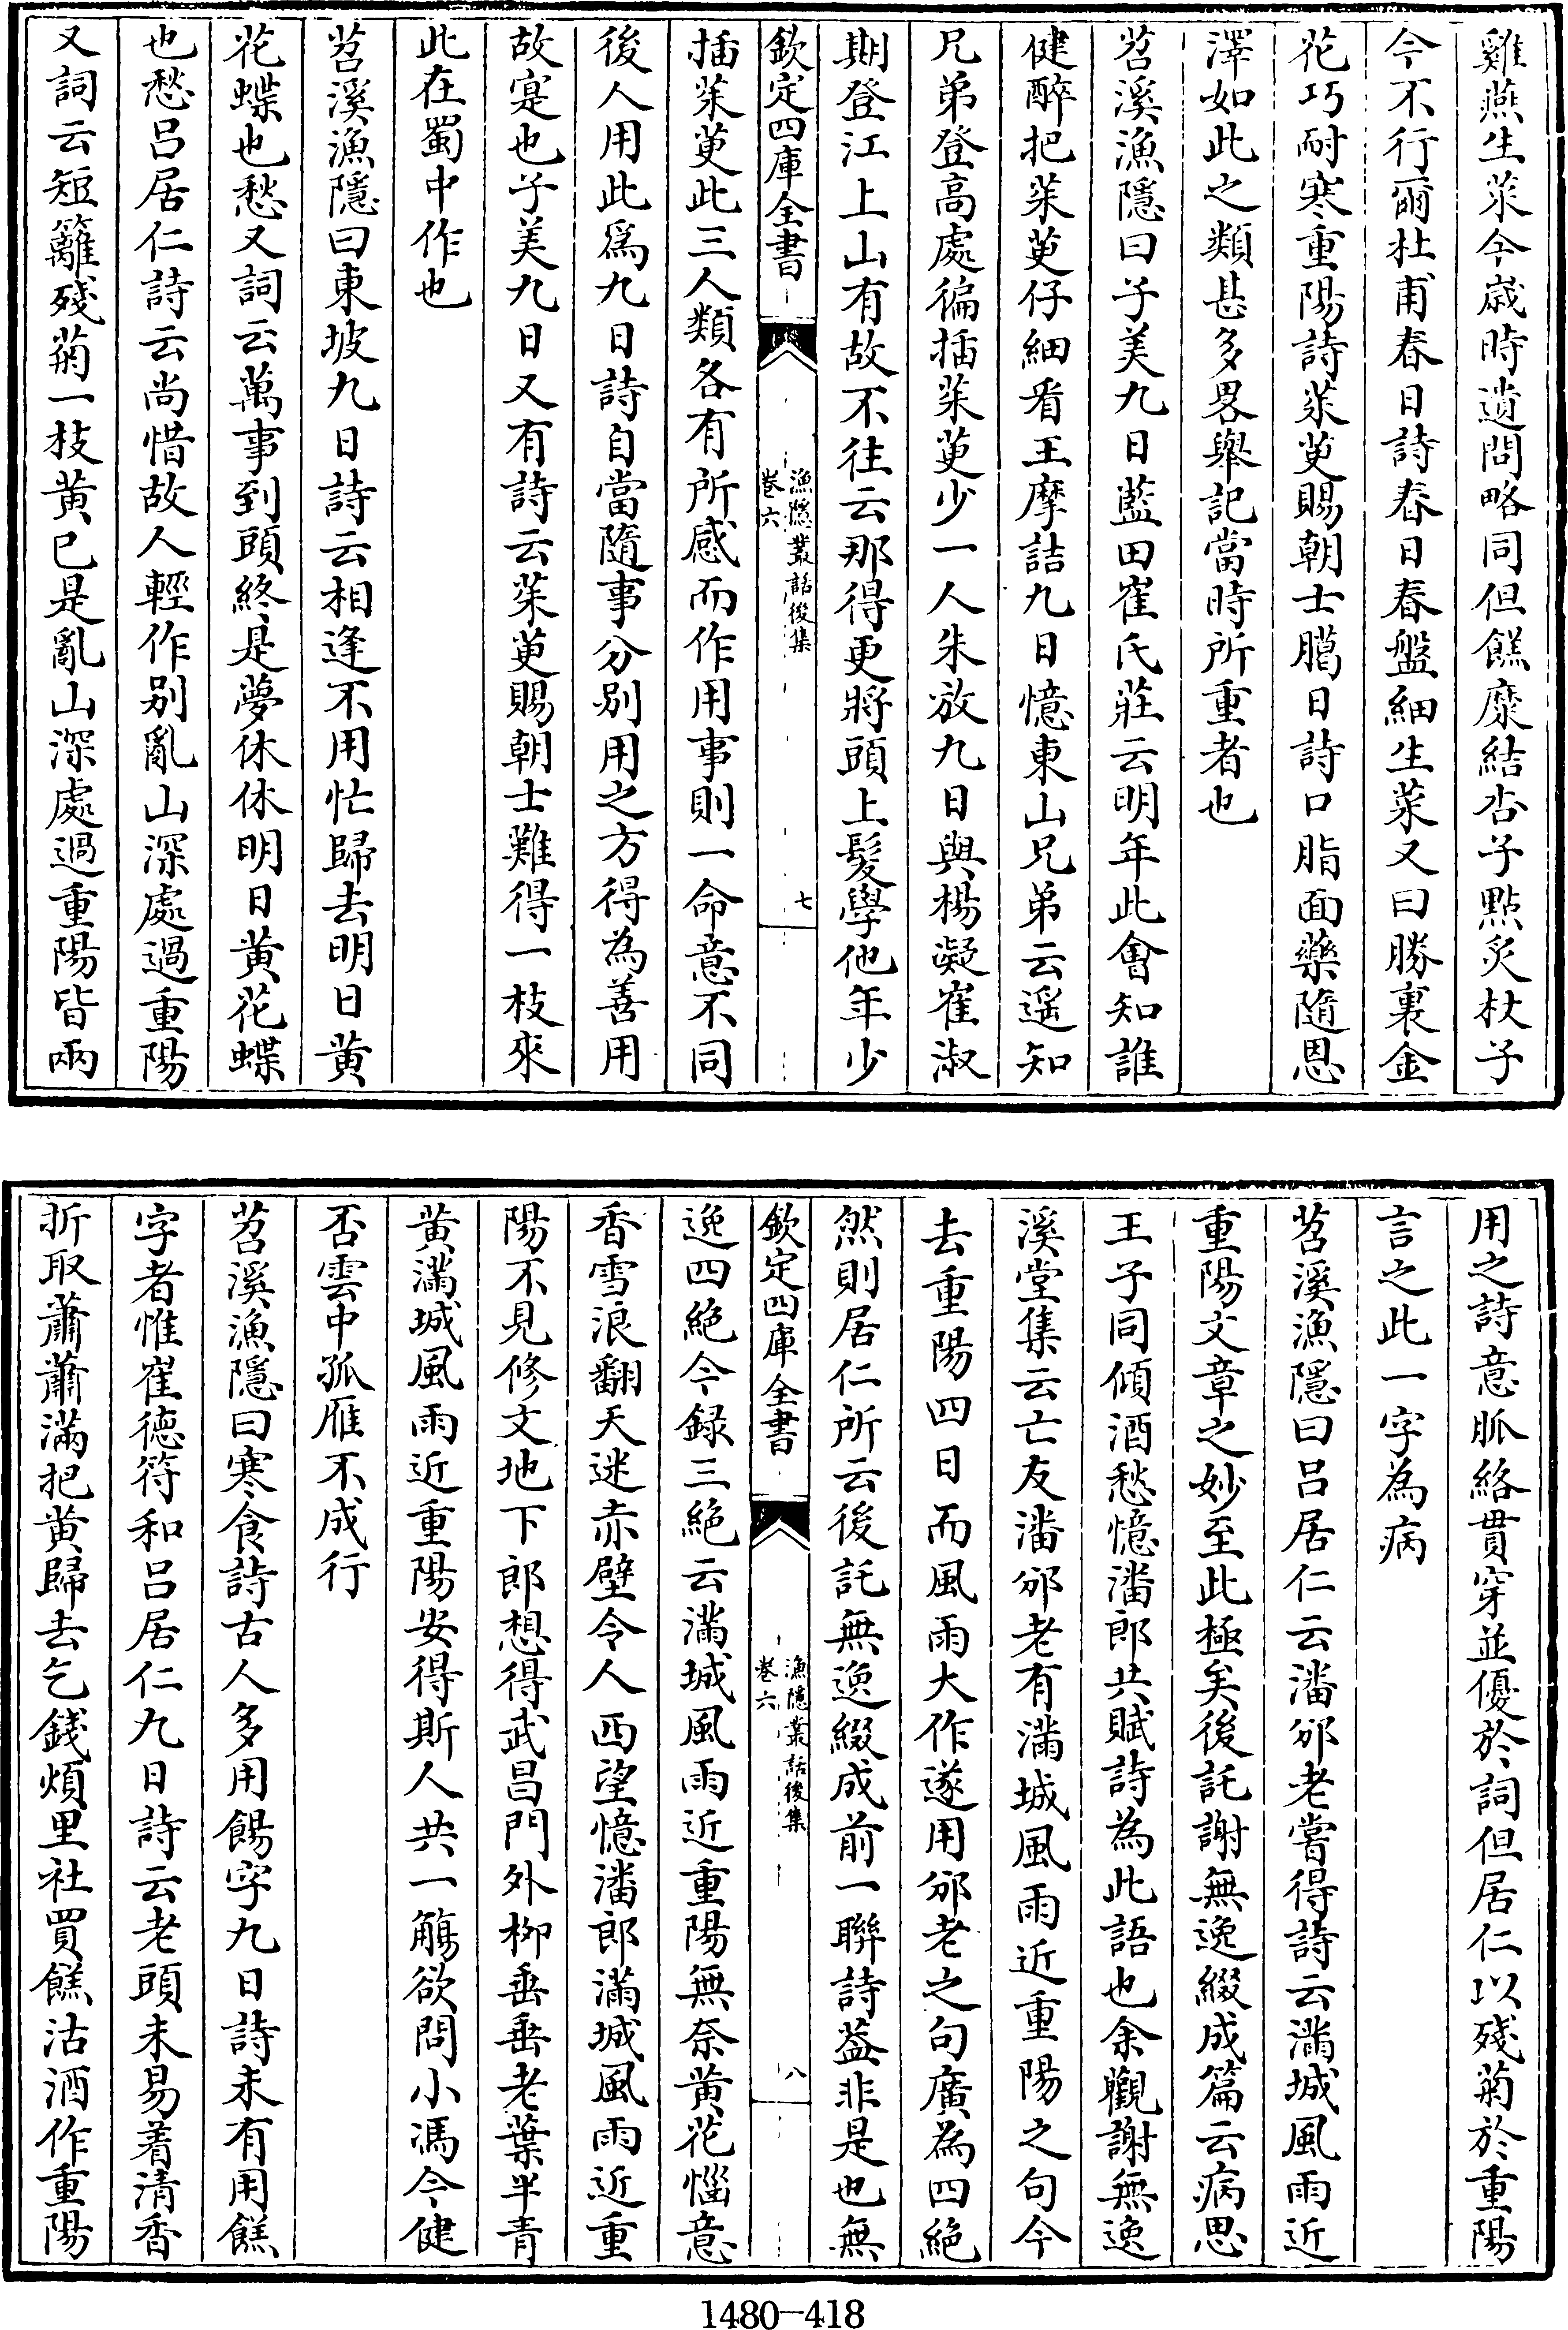 雞燕生菜今歳時遺問略同但餻糜結杏子㸃炙杖子
今不行爾杜甫春日詩春日春盤細生菜又曰勝裏金
花巧耐寒重陽詩茱萸賜朝士臈日詩口脂面藥隨恩
澤如此之類甚多畧舉記當時所重者也
苕溪漁隱曰子美九日藍田崔氏莊云明年此會知誰
健醉把茱萸仔細看王摩詰九日憶東山兄弟云遥知
兄弟登高處徧插茱萸少一人朱放九日與楊凝崔淑
期登江上山有故不往云那得更將頭上髮學他年少
欽定四庫全書
漁隱叢話後集
卷六
七
插茱萸此三人類各有所感而作用事則一命意不同
後人用此爲九日詩自當隨事分别用之方得為善用
故寔也子美九日又有詩云茱萸賜朝士難得一枝來
此在蜀中作也
苕溪漁隱曰東坡九日詩云相逢不用忙歸去明日黄
花蝶也愁又詞云萬事到頭終是夢休休明日黄花蝶
也愁吕居仁詩云尚惜故人輕作别亂山深處過重陽
又詞云短籬殘菊一枝黄已是亂山深處過重陽皆兩
用之詩意脈絡貫穿並優於詞但居仁以殘菊於重陽
言之此一字為病
苕溪漁隱曰吕居仁云潘邠老嘗得詩云滿城風雨近
重陽文章之妙至此極矣後託謝無逸綴成篇云病思
王子同傾酒愁憶潘郎共賦詩為此語也余觀謝無逸
溪堂集云亡友潘邠老有滿城風雨近重陽之句今
去重陽四日而風雨大作遂用邠老之句廣為四絶
然則居仁所云後託無逸綴成前一聯詩葢非是也無
欽定四庫全書
漁隱叢話後集
卷六
八
逸四絶今録三絶云滿城風雨近重陽無奈黄花惱意
香雪浪翻天迷赤壁令人西望憶潘郎滿城風雨近重
陽不見修文地下郎想得武昌門外柳垂垂老葉半青
黄滿城風雨近重陽安得斯人共一觴欲問小馮今健
否雲中孤雁不成行
苕溪漁隱曰寒食詩古人多用餳字九日詩未有用餻
字者惟崔德符和吕居仁九日詩云老頭未易着清香
折取蕭蕭滿把黄歸去乞錢煩里社買餻沽酒作重陽
1480-418